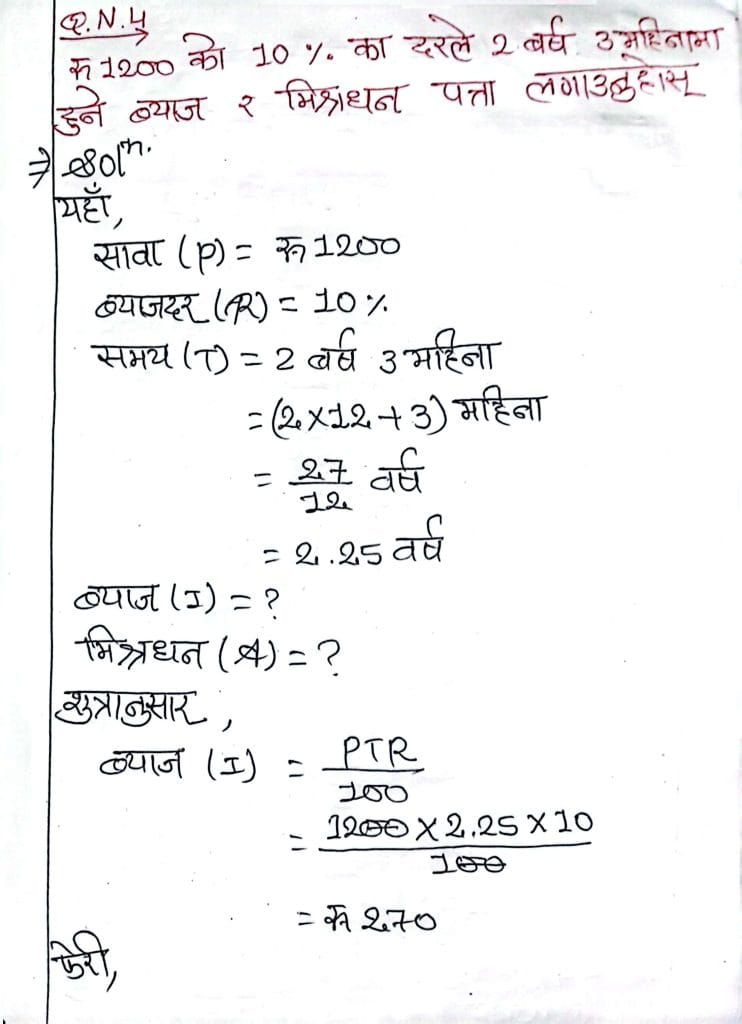 Q.N.4
रु 1200 को 10 % का दरले 2 वर्ष 3 महिनामा
हुने ब्याज र मिश्रधन पत्ता लगाउनुहोस्
⇒ Solⁿ.
यहाँ,
सावा (P) = रु 1200
ब्याजदर (R) = 10 %
समय (T) = 2 वर्ष 3 महिना
= (2×12 + 3) महिना
= 27/12 वर्ष
= 2.25 वर्ष
ब्याज (I) = ?
मिश्रधन (A) = ?
शुत्रानुसार,
ब्याज (I) = PTR/100
= 1200 × 2.25 × 10/100
= रु 270
फेरी,